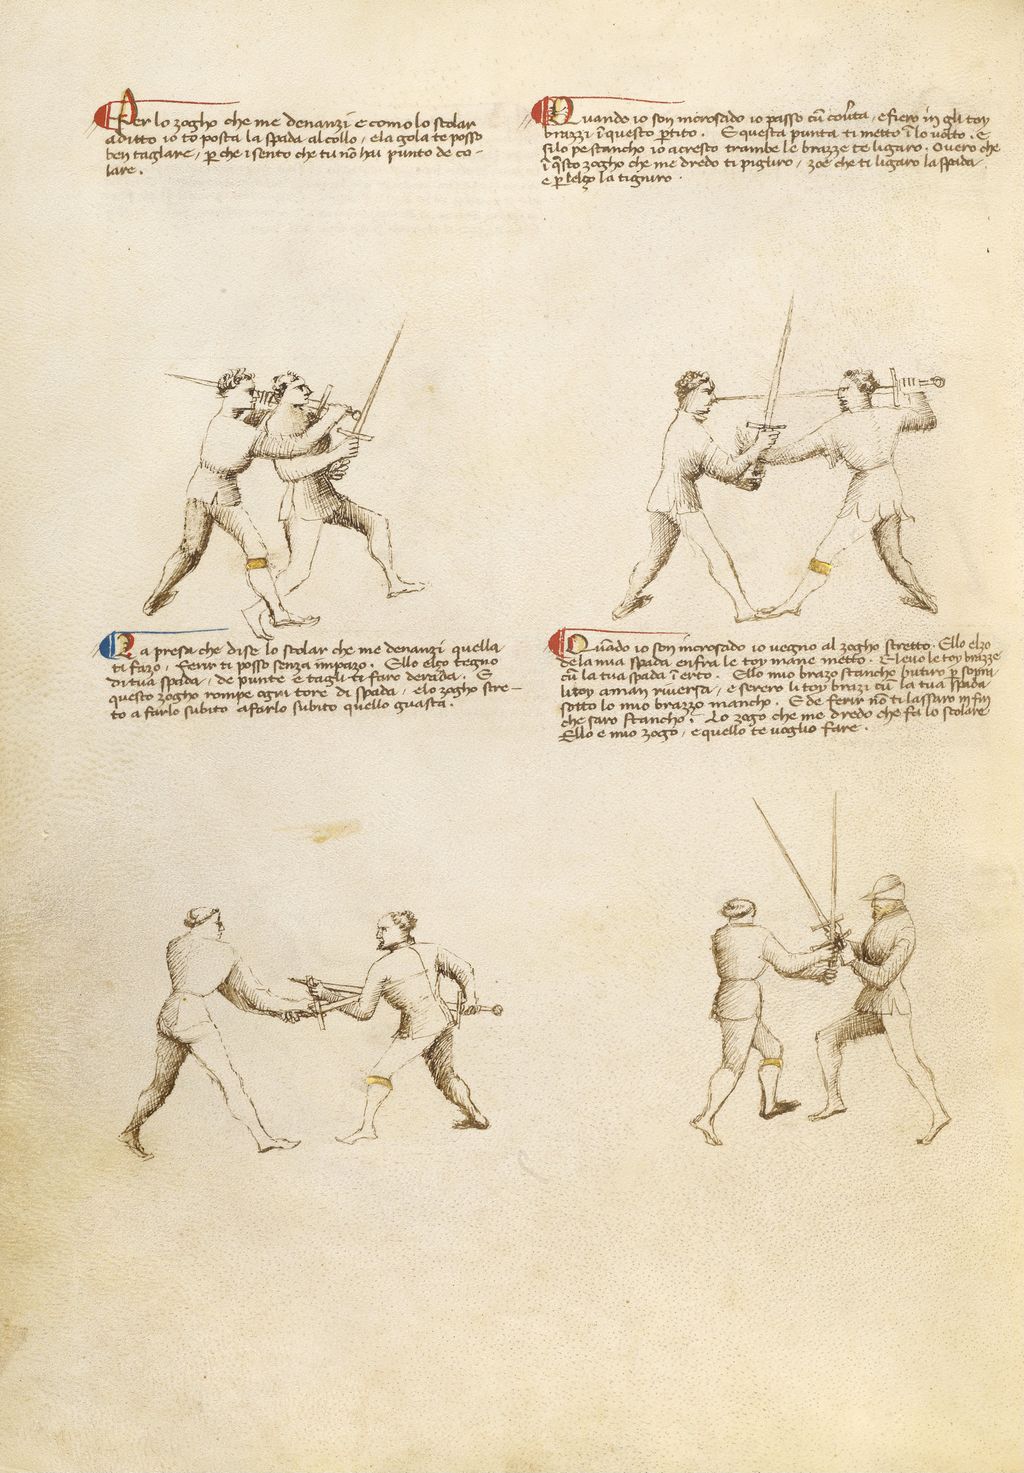 Per lo zogho che me denanzi e como lo scolar
a ditto io tò posta la spada al collo / e la gola te posso
ben taglare / p che i sento che tu nō hai punto de co-
lare.
Quando io son incrosado io passo cū cov̄ta / e fiero in gli toy
brazzi ī questo p̄tito. E questa punta ti metto ī lo volto. E
si lo pe stancho io acresto trambe le brazze te ligaro. Overo che
ī q̄sto zogho che me dredo ti pigliro / zoè che ti ligaro la spada
e p lelço la tigniro.
La presa che dise lo scolar che me denanzi quella
ti fazo / ferir ti posso senza impazo. Ello elço tegno
di tua spada / de punte e tagli ti faro derada. E
questo zogho rompe ogni tore di spada / e lo zogho stre-
to a farlo subito a farlo subito quello guasta.
Quādo io son incrosado io vegno al zogho stretto. Ello elzo
de la mia spada enfra le toy mane metto. E levo le toy brazze
cū la tua spada ī erto. Ello mio brazo stancho butirò p sopra
li toy a man riversa / e serero li toy brazi cū la tua spada
sotto lo mio brazzo mancho. E de ferir nō ti lassaro in fin
che saro stancho. Lo zogo che me dredo che fa lo scolare
Ello e mio zogo / e quello te voglio fare.